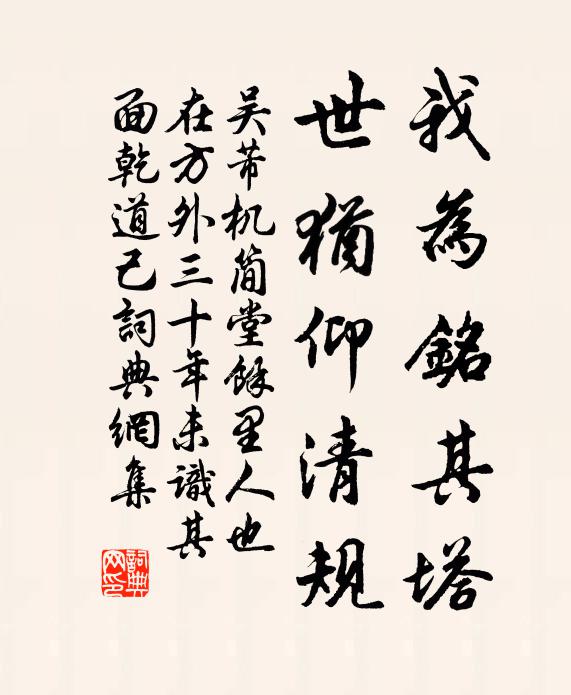 我為銘其塔
世猶仰清規
吴芾机简堂餘里人也
在方外三十年未識其
面乾道己詞典網集
詞典网印